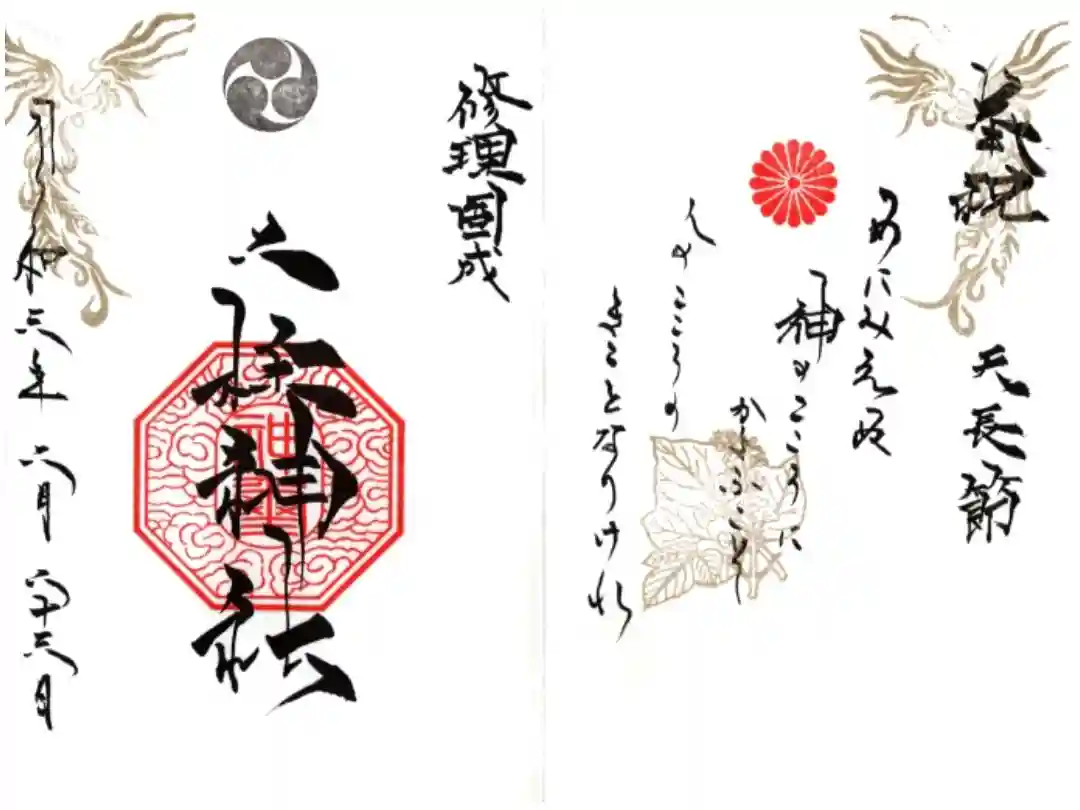 奉祝
天長節
めにみえぬ
神のこころに
かよふこそ
人のこころの
まことなりけれ
修理固成
神社
令和三年 二月 二十三日